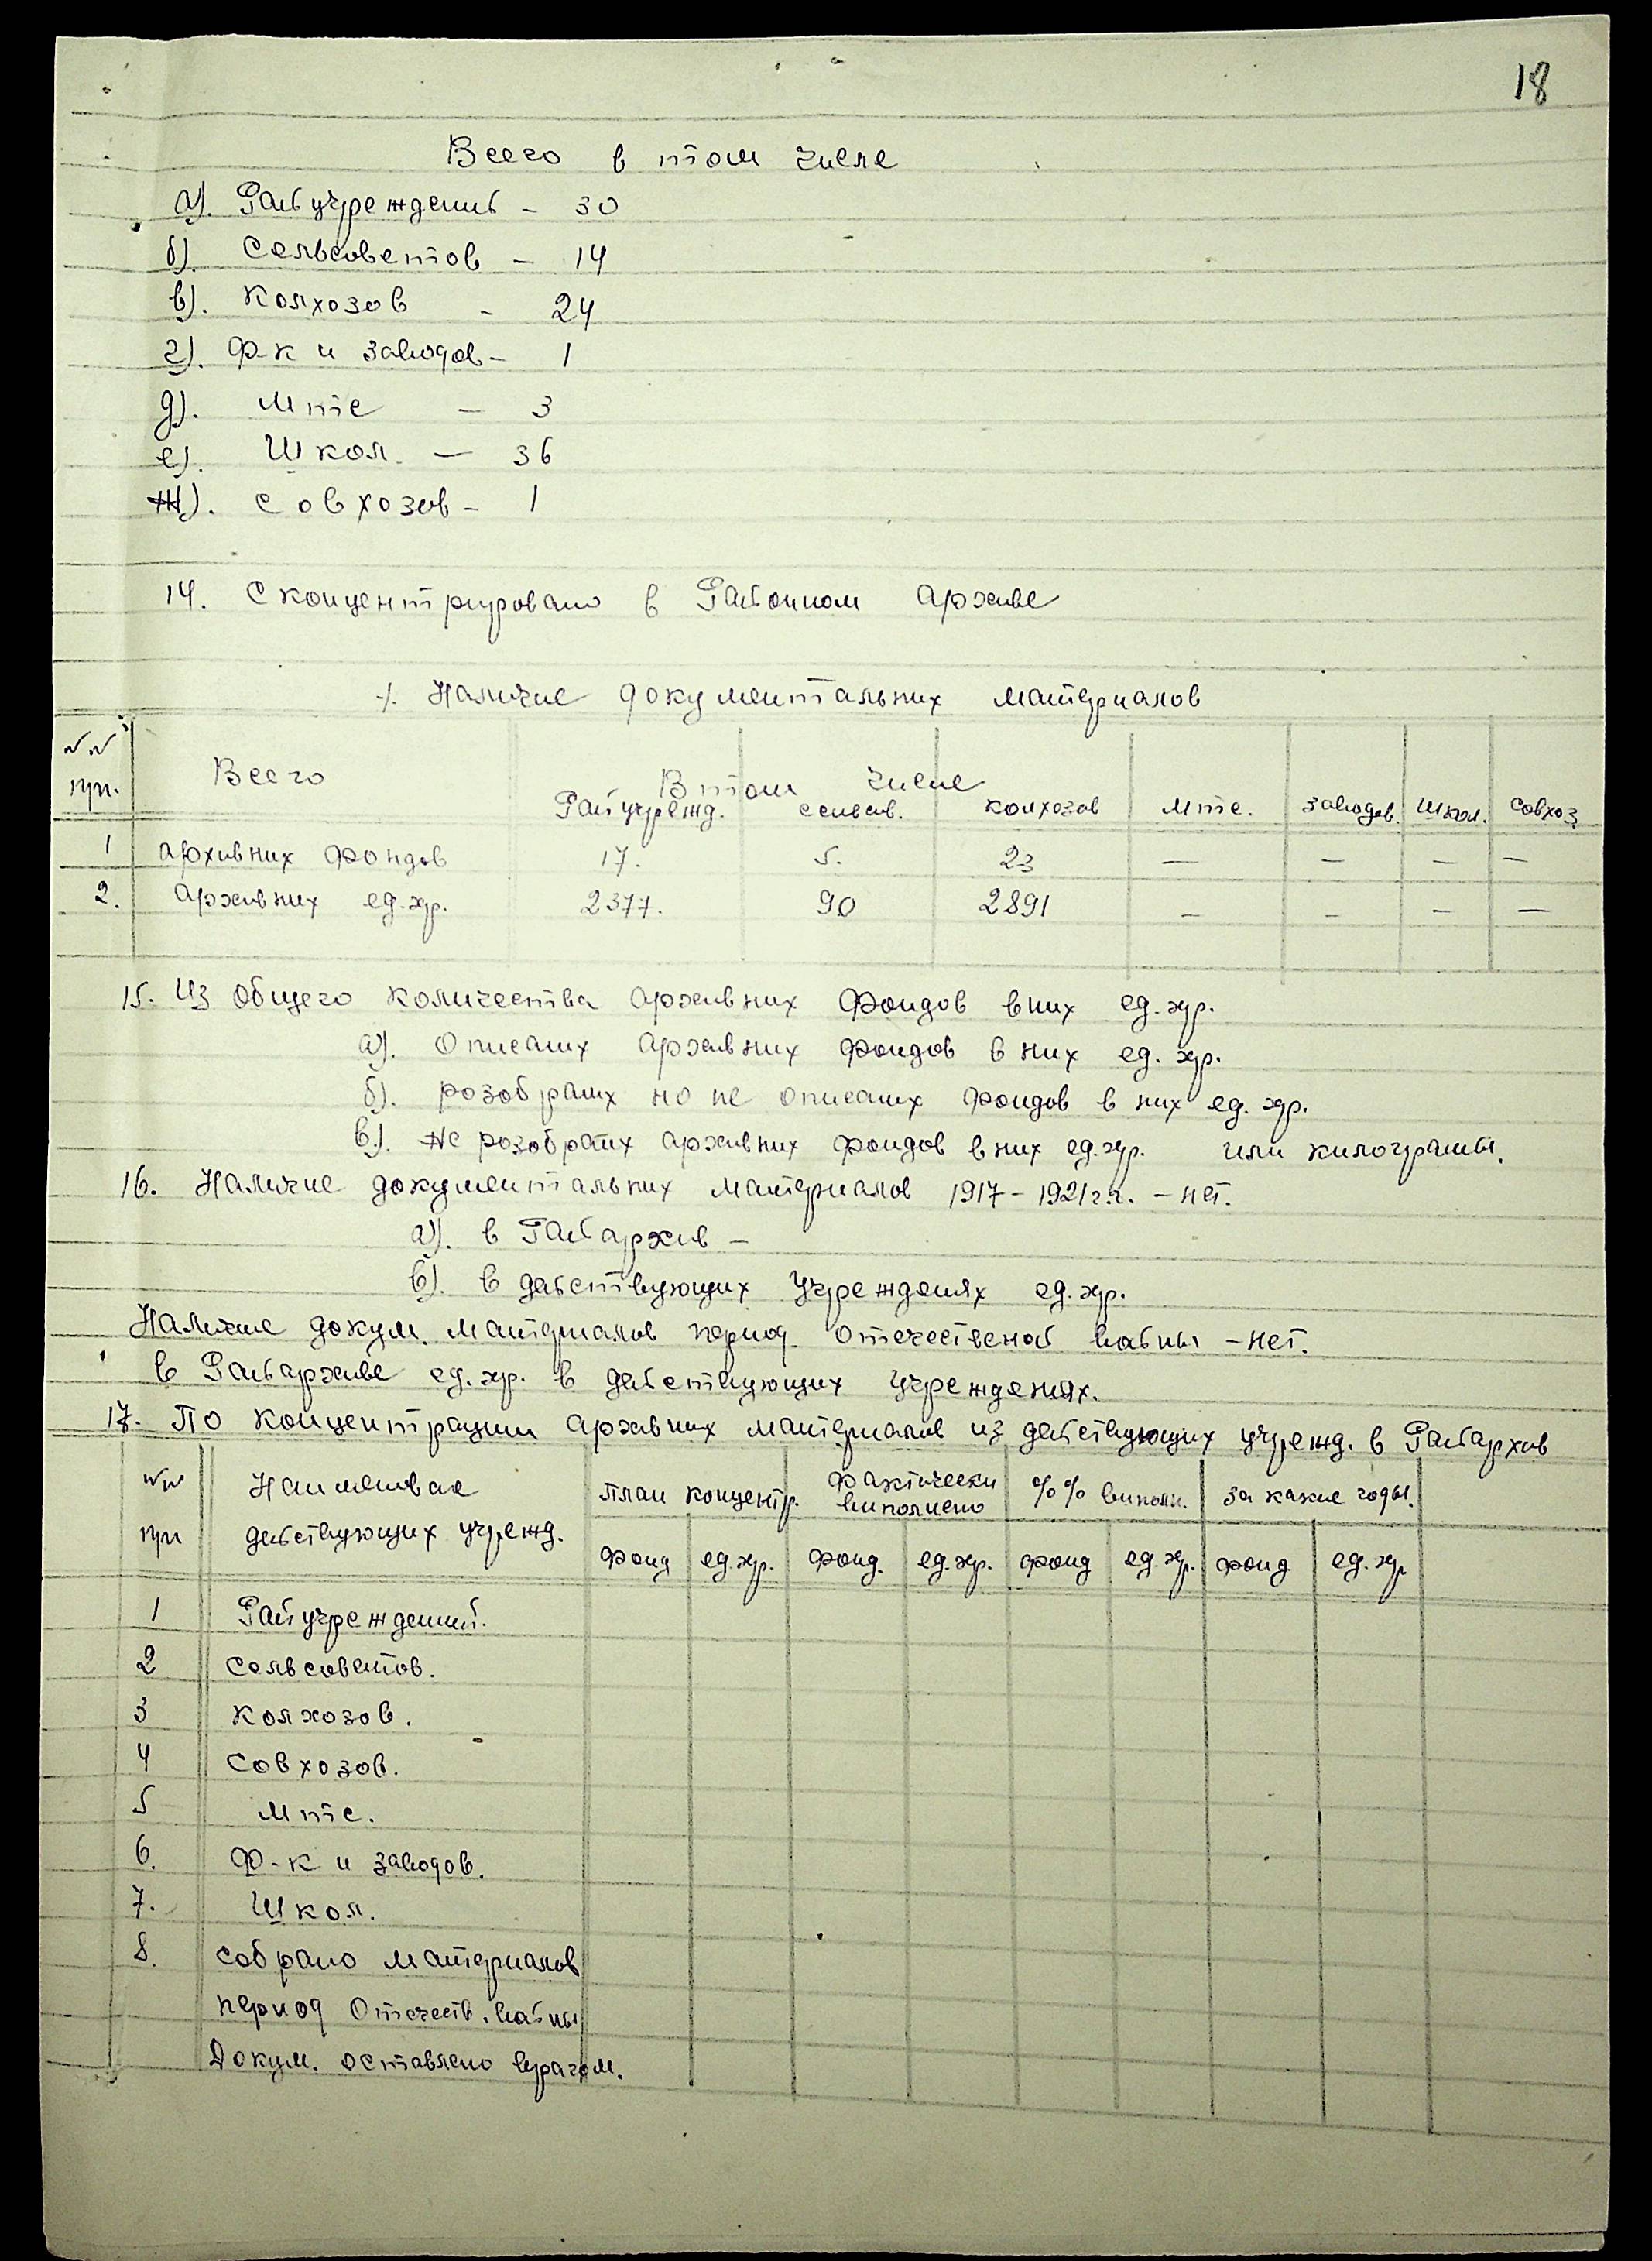 18
Всего в том числе
а). Райучреждений - 30
б). Сельсоветов - 14
в). Колхозов - 24
г). Ф-к и заводов - 1
д). Мтс - 3
е). Школ. - 36
Ж). Совхозов - 1
14. Сконцентрировано в Районом Архиве
1. Наличие документальних материалов
№№ пп. Всего В том числе
Райучрежд. сельсов. колхозов Мтс. заводов. Школ. совхоз.
1 архивних Фондов 17. 5. 23 — — — —
2. Архивних ед.хр. 2377. 90 2891 — — — —
15. Из Общего количества Архивних Фондов в них ед.хр.
а). Описаних Архивних Фондов в них ед. хр.
б). розобраних но не Описаних Фондов в них ед. хр.
в). Не розобраних Архивних Фондов в них ед.хр. или килограмы.
16. Наличие документальних материалов 1917-1921г.г. - нет.
а). в Райархив -
в). в действующих Учреждениях ед.хр.
Наличие докум. материалов период Отечественой войны - нет.
в Райархиве ед.хр. в действующих Учреждениях.
17. По Концентрации Архивних материалов из действующих учрежд. в Райархив
№№ пп Наименован действующих учрежд. План концентр. Фактически виполнено %% виполн. за какие годы.
Фонд ед.хр. Фонд. ед.хр. Фонд ед.хр. Фонд ед.хр
1 Райучреждений.
2 Сельсоветов.
3 Колхозов.
4 Совхозов.
5 Мтс.
6. Ф-к и заводов.
7. Школ.
8. Собрано материалов
период Отечеств. войны
Докум. оставлено врагом.